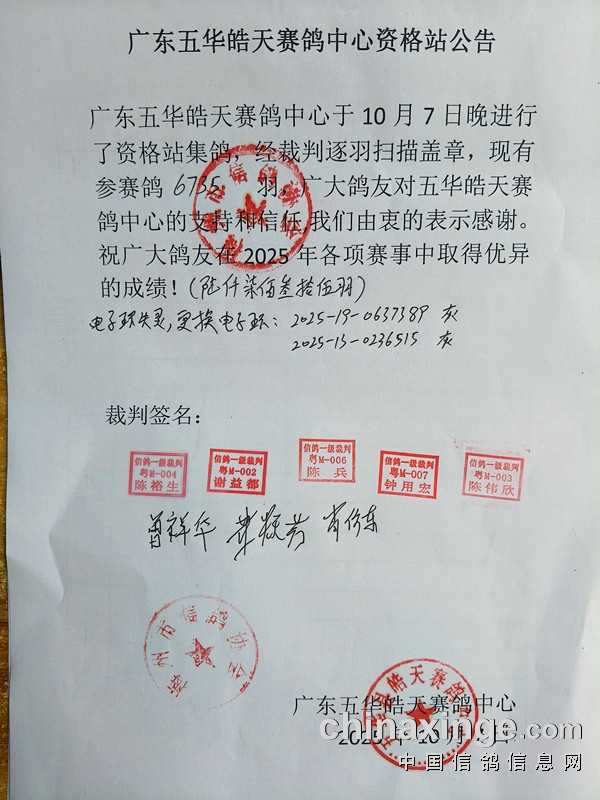 广东五华皓天赛鸽中心资格站公告
广东五华皓天赛鸽中心于10月7日晚进行
了资格站集鸽，经裁判逐羽扫描盖章，现有
参赛鸽 6735 羽，广大鸽友对五华皓天赛
鸽中心的支持和信任,我们由衷的表示感谢。
祝广大鸽友在2025年各项赛事中取得优异
的成绩！(陆仟柒佰叁拾伍羽)
梅州市信鸽协会
电子环失灵,更换电子环：2025-19-0637389 灰
2025-13-0236515 灰
裁判签名：
信鸽一级裁判
粤M-004
陈裕生
信鸽一级裁判
粤M-002
谢益都
信鸽一级裁判
粤M-006
陈兵
信鸽一级裁判
粤M-007
钟用宏
信鸽一级裁判
粤M-003
陈伟欣
曾祥华
梅州市信鸽协会
广东五华皓天赛鸽中心
2025年10月7日
chinaxinge.com
中国信鸽信息网